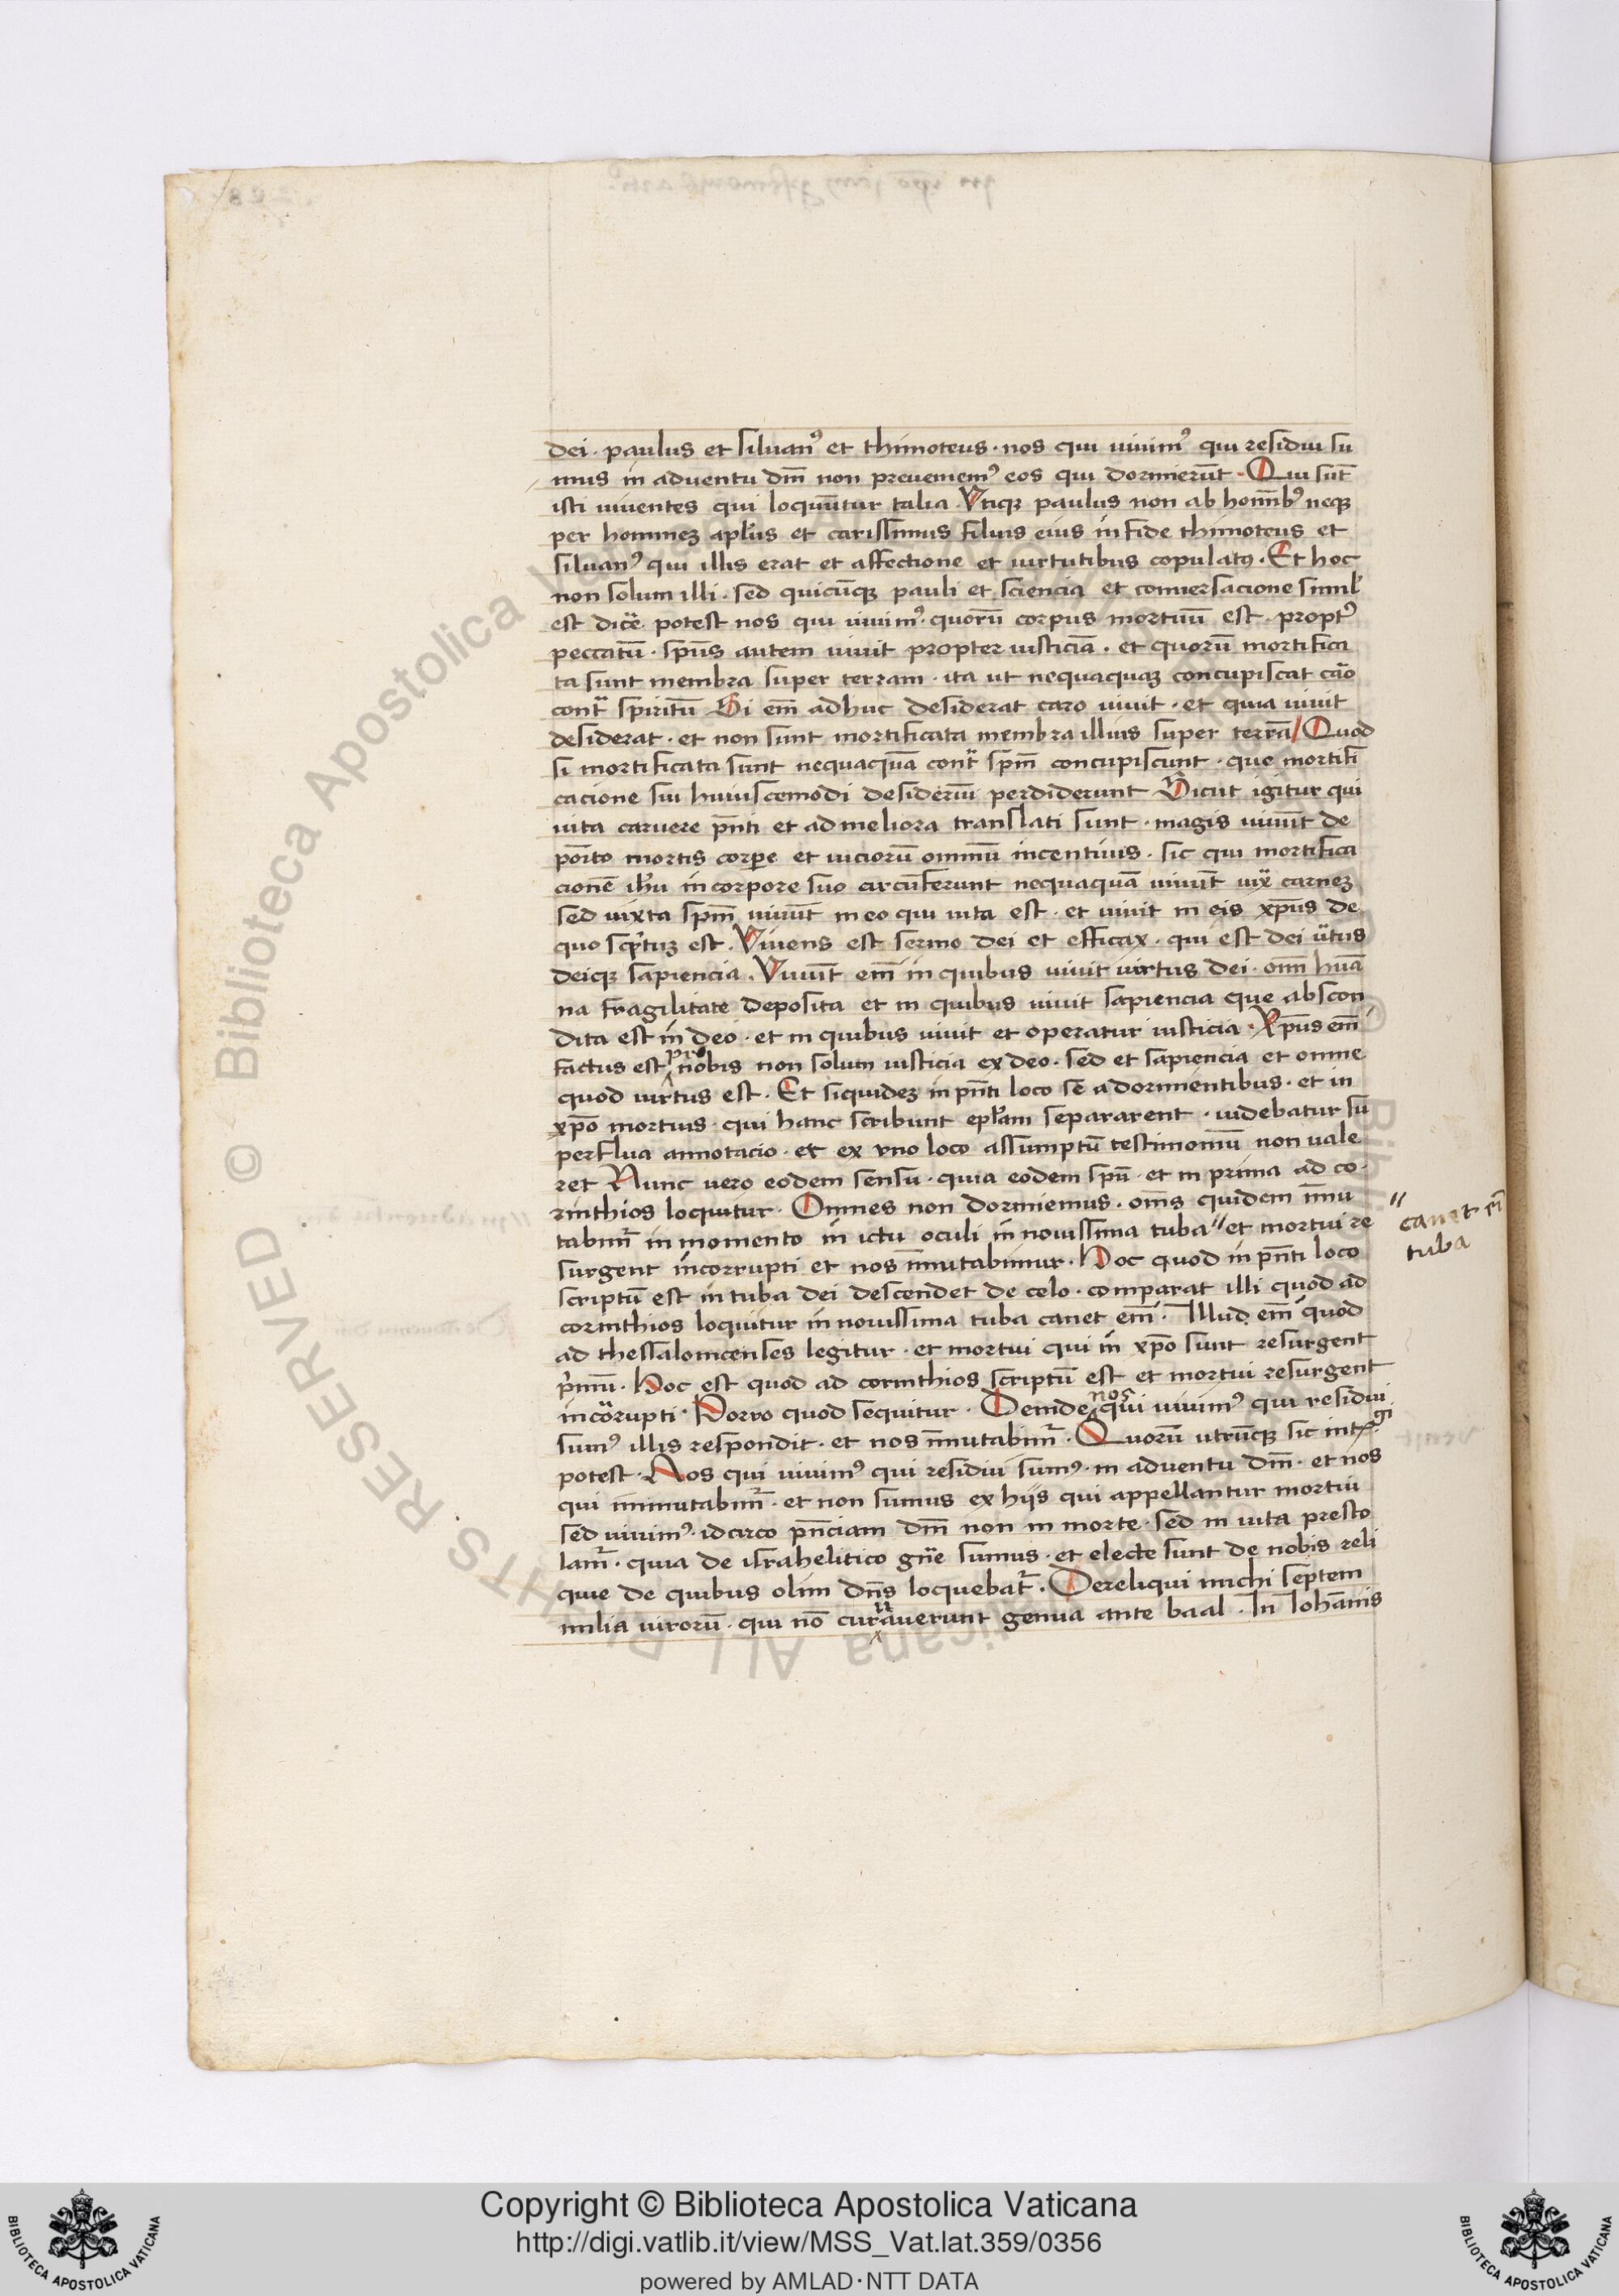 dei · paulus et siluan⁹ et thimoteus · nos qui uiuim⁹ qui residui su
mus in aduentu dn̄i non preueniem⁹ eos qui dormierūt · Qui sūt
isti uiuentes qui loquūtur talia · Vtiqꝫ paulus non ab hom̄ibꝰ neqꝫ
per hominez apl̄us et carissimus filius eius in fide thimoteus et
siluan⁹ qui illis erat et affectione et uirtutibus copulatꝰ · Et hoc
non solum illi · sed quicūqꝫ pauli et sciencia et conuersacione simil̄
est dic̄e potest nos qui uiuim⁹ · quorū corpus mortuū est · propt̄
peccatū · sp̄us autem uiuit propter iusticiā · et quorū mortifica
ta sunt membra super terram · ita ut nequaquaz concupiscat cāo
cont̄ spiritū Si em̄ adhuc desiderat caro uiuit · et quia uiuit
desiderat · et non sunt mortificata membra illius super terrā / Quod
si mortificata sunt nequaquā cont̄ sp̄m concupiscunt · que mortifi
cacione sui huiuscemodi desideriū perdiderunt Sicut igitur qui
uita caruere p̄nti et ad meliora translati sunt · magis uiuūt de
po̅ito mortis corpe et uiciorū omniū incentiuis · sic qui mortifica
cionē ih̄u in corpore suo circūferunt nequaquā uiuūt iux̄ carnez
sed iuxta sp̄m uiuūt in eo qui uita est · et uiuit in eis xp̄us de
quo scp̄tuz est · Viuens est sermo dei et efficax · qui est dei ūtus
deiqꝫ sapiencia · Viuūt em̄ in quibus uiuit uirtus dei · om̄i humā
na fragilitate deposita et in quibus uiuit sapiencia que abscon
dita est in deo · et in quibus uiuit et operatur iusticia · Xp̄us em̄
factus est pro nobis non solum iusticia ex deo · sed et sapiencia et omne
quod uirtus est · Et siquidez in p̄nti loco se a dormientibus · et in
xp̄o mortuis · qui hanc scribunt epl̄am separarent · uidebatur su
perflua annotacio · et ex vno loco assumptū testimoniū non uale
ret Nunc uero eodem sensu · quia eodem sp̄u · et in prima ad co·
rinthios loquitur · Omnes non dormiemus · om̄s quidem im̄u
tabim̄ in momento in ictu oculi in nouissima tuba // et mortui re
surgent incorrupti et nos im̄utabimur · Hoc quod in p̄nti loco
scriptū est in tuba dei descendet de celo · comparat illi quod ad
corinthios loquitur in nouissima tuba canet em̄ · Illud em̄ quod
ad thessalonicenses legitur · et mortui qui in xp̄o sunt resurgent
p̄imū · Hoc est quod ad corinthios scriptū est et mortui resurgent
incōrupti · Porro quod sequitur · Deinde nos qui uiuim⁹ qui residui
sum⁹ illis respondit · et nos im̄utabim̄ · Quorū utrūqꝫ sic int̄gi
potest · Nos qui uiuim⁹ qui residui sum⁹ · in aduentu dn̄i · et nos
qui immutabim̄ · et non sumus ex hijs qui appellantur mortui
sed uiuim⁹ · idcirco p̄nciam dn̄i non in morte · sed in uita presto
lam̄ · quia de israhelitico gn̄e sumus · et electe sunt de nobis reli
quie de quibus olim dn̄s loquebat̄ · Dereliqui michi septem
milia uirorū · qui nō curuauerunt genua ante baal · In Iohānis
// canet em̄
tuba
Copyright © Biblioteca Apostolica Vaticana
http://digi.vatlib.it/view/MSS_Vat.lat.359/0356
powered by AMLAD·NTT DATA
BIBLIOTECA APOSTOLICA VATICANA
BIBLIOTECA APOSTOLICA VATICANA